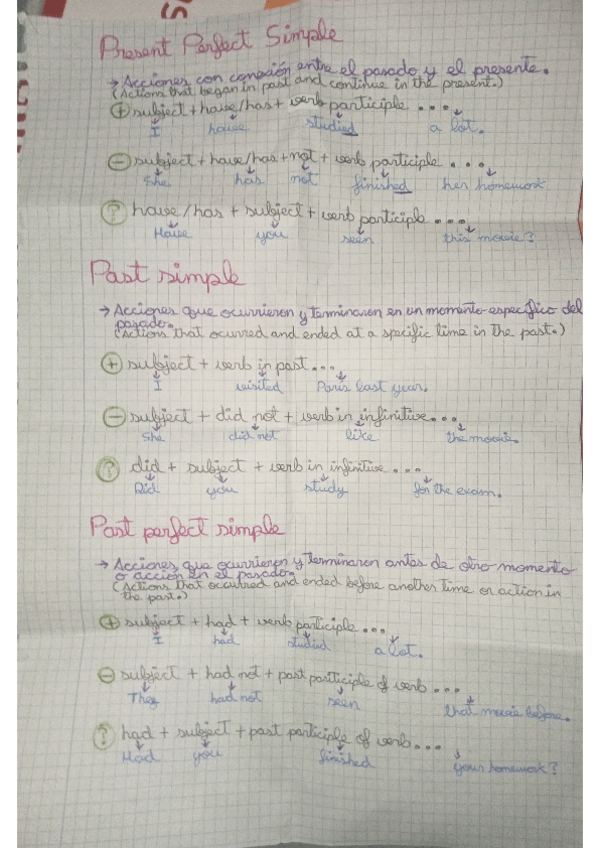 Present Perfect Simple
→ Acciones con conexión entre el pasado y el presente.
(Actions that began in past and continue in the present.)
+ subject + have/has + verb participle ....
I have studied a lot.
- subject + have/has + not + verb participle ....
She has not finished her homework
? have/has + subject + verb participle ....
Have you seen this movie?
Past simple
→ Acciones que ocurrieron y terminaron en un momento específico del
pasado.
(Actions that ocurred and ended at a specific time in the past.)
+ subject + verb in past...
I visited Paris last year.
- subject + did not + verb in infinitive....
She did not like the movie.
? did + subject + verb in infinitive ....
Did you study for the exam.
Past perfect simple
→ Acciones que ocurrieron y terminaron antes de otro momento
o acción en el pasado.
(Actions that ocurred and ended before another time or action in
the past.)
+ subject + had + verb participle ....
I had studied a lot.
- subject + had not + past participle of verb ....
They had not seen that movie before.
? had + subject + past participle of verb....
Had you finished your homework?